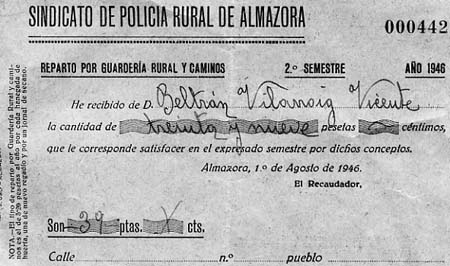 SINDICATO DE POLICIA RURAL DE ALMAZORA
000442
REPARTO POR GUARDERÍA RURAL Y CAMINOS 2.º SEMESTRE AÑO 1946
He recibido de D. Beltrán Vilarroig Vicente
la cantidad de treinta y nueve pesetas céntimos,
que le corresponde satisfacer en el expresado semestre por dichos conceptos.
Almazora, 1.º de Agosto de 1946.
El Recaudador,
Son 39 ptas. cts.
Calle n.º pueblo
NOTA.—El tipo de reparto por Guardería Rural y cami-
nos es el de pesetas al año por cada hanegada de
huerta, una de nuevo regadío y por un jornal de secano.